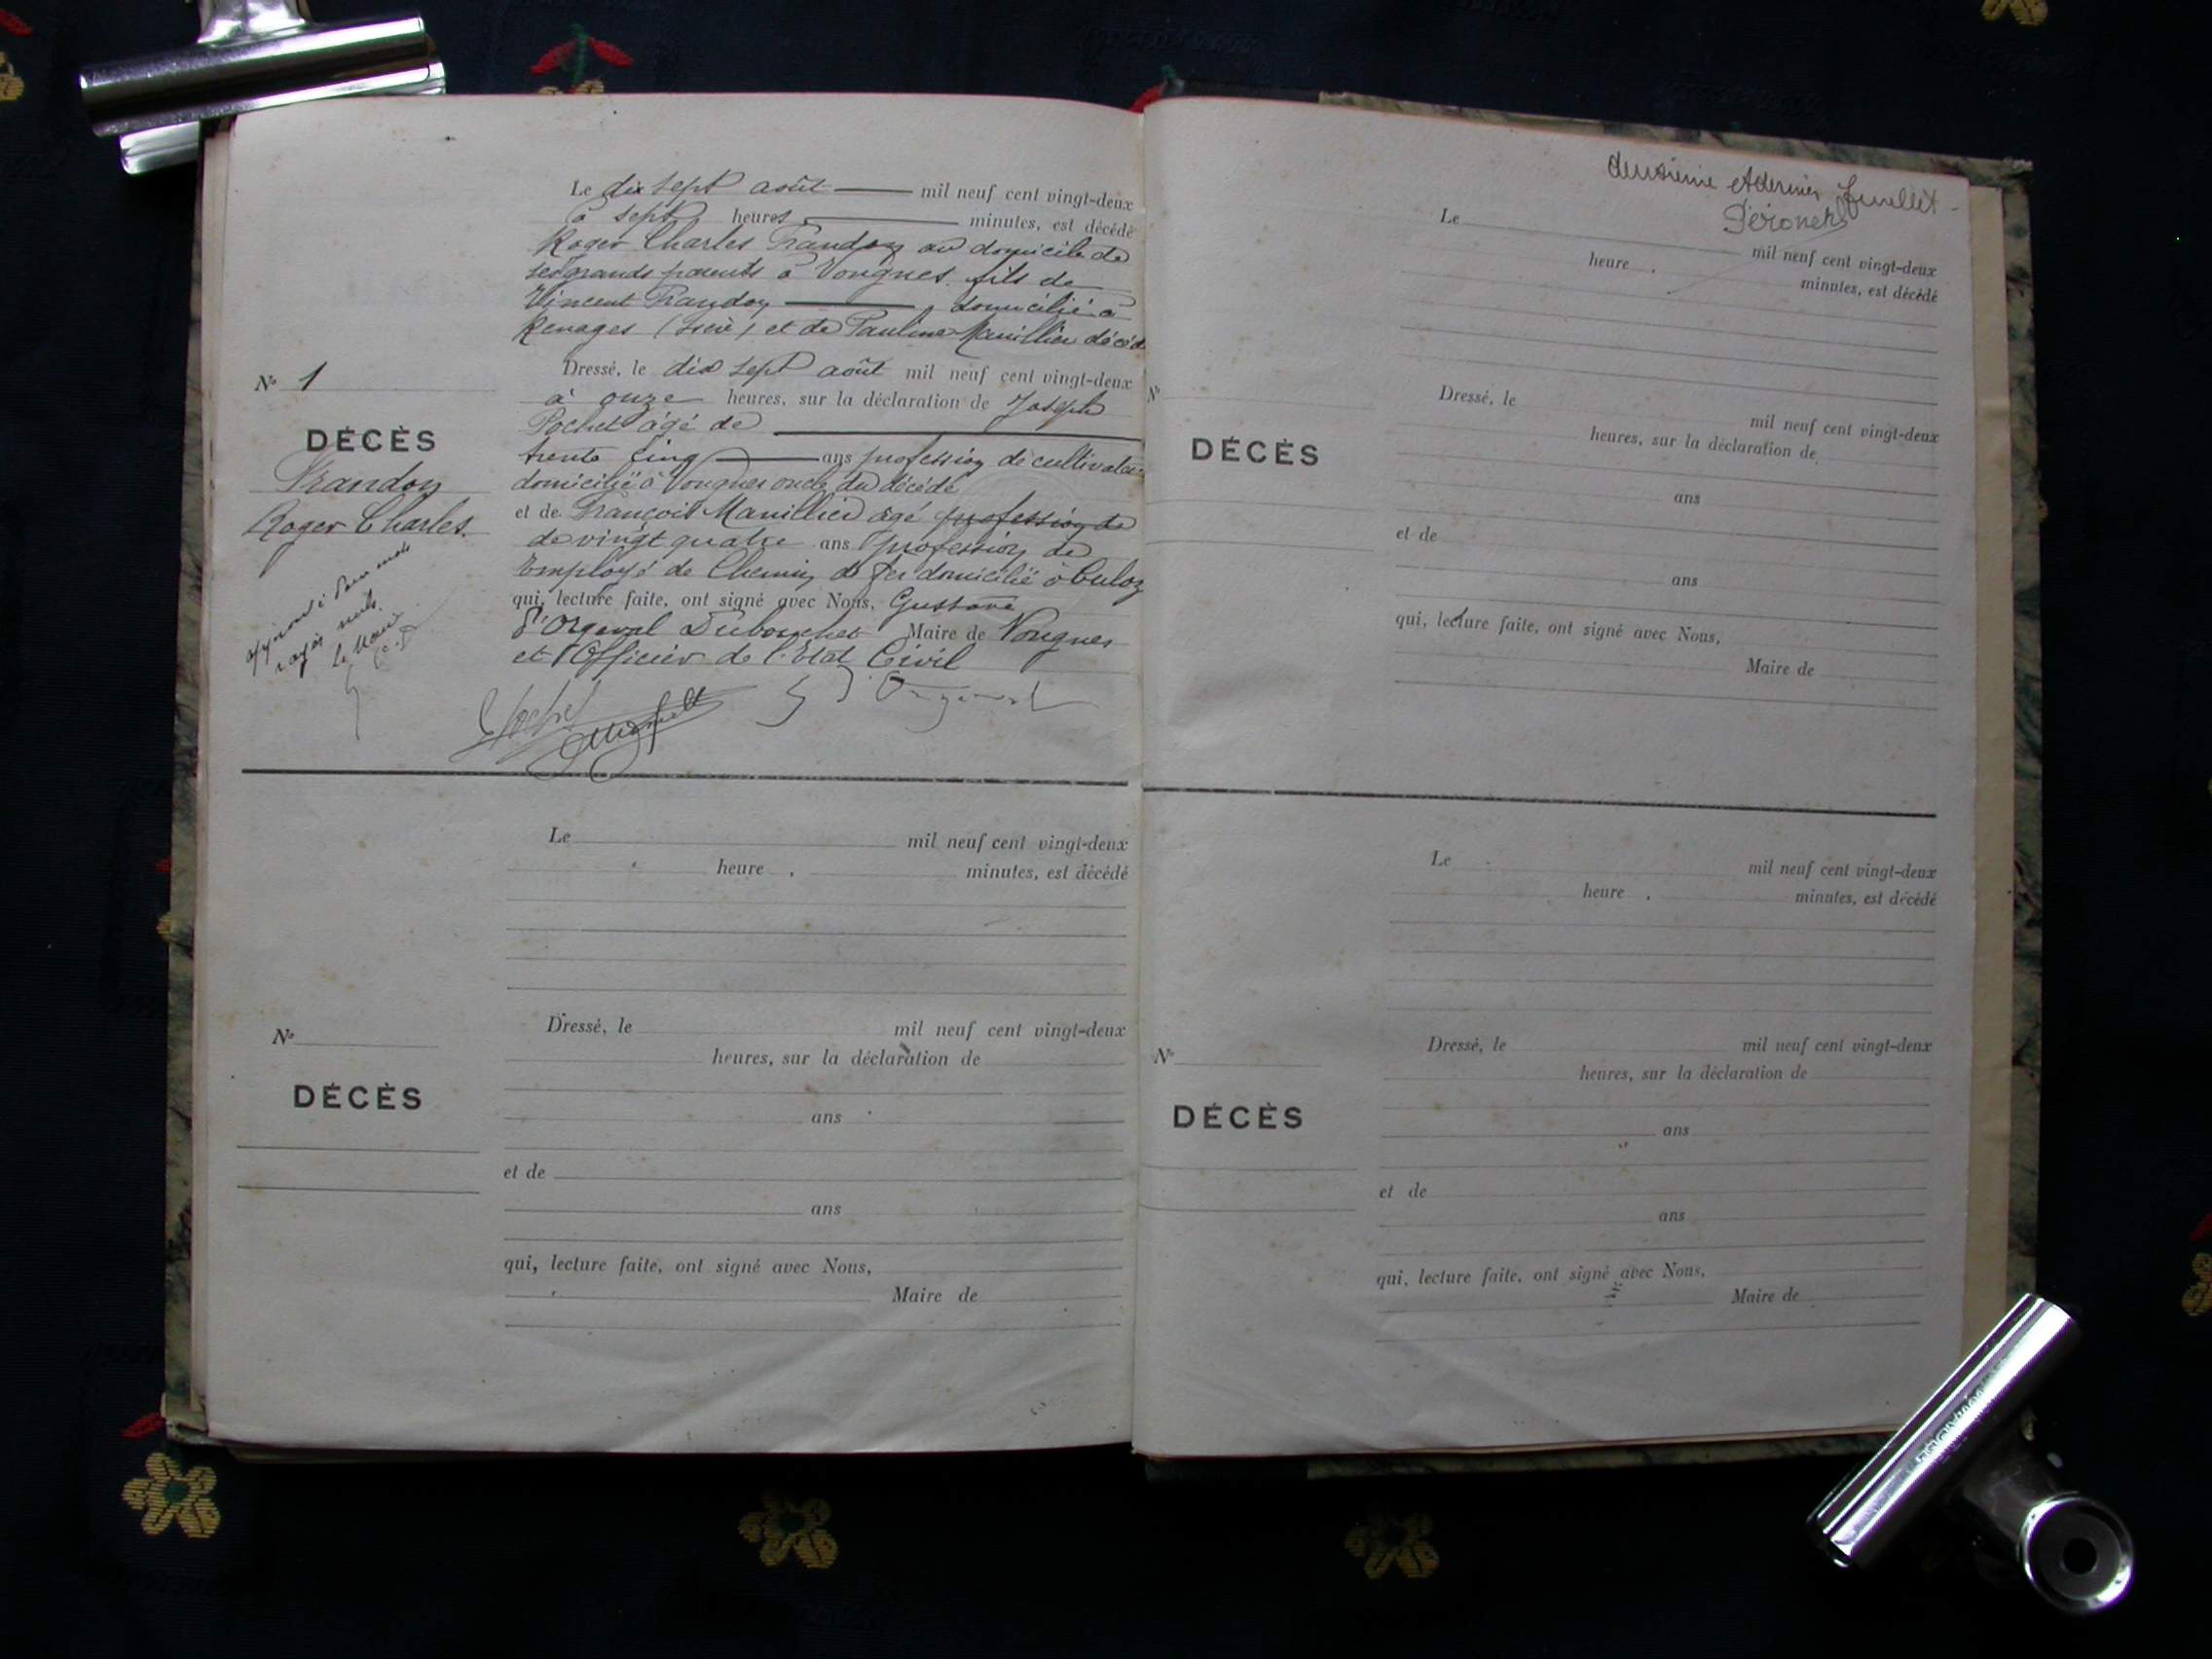 Le dix sept août mil neuf cent vingt-deux
à sept heures, minutes, est décédé
Roger Charles Trandoy au domicile de
ses grands parents à Vongnes fils de
Vincent Trandoy, domicilié à
Renages (Isère) et de Pauline Manillier décéd
Nº 1
DÉCÈS
Trandoy
Roger Charles.
approuvé
rayés nuls.
Le Maire
Dressé, le dix sept août mil neuf cent vingt-deux
à onze heures, sur la déclaration de Joseph
Pochet âgé de
trente cinq ans profession de cultivateur
domicilié à Vongnes oncle du décédé
et de François Manillier âgé profession de
de vingt quatre ans profession de
Employé de Chemin de fer domicilié à Culoz
qui, lecture faite, ont signé avec Nous, Gustave
d'Orgeval Dubouchet Maire de Vongnes
et Officier de l'Etat Civil
Pochet
G d'Orgeval
Le mil neuf cent vingt-deux
heure , minutes, est décédé
Nº
DÉCÈS
Dressé, le mil neuf cent vingt-deux
heures, sur la déclaration de
ans
et de
ans
qui, lecture faite, ont signé avec Nous,
Maire de
deuxième et dernier feuillet
Le mil neuf cent vingt-deux
heure , minutes, est décédé
Nº
DÉCÈS
Dressé, le mil neuf cent vingt-deux
heures, sur la déclaration de
ans
et de
ans
qui, lecture faite, ont signé avec Nous,
Maire de
Le mil neuf cent vingt-deux
heure , minutes, est décédé
Nº
DÉCÈS
Dressé, le mil neuf cent vingt-deux
heures, sur la déclaration de
ans
et de
ans
qui, lecture faite, ont signé avec Nous,
Maire de